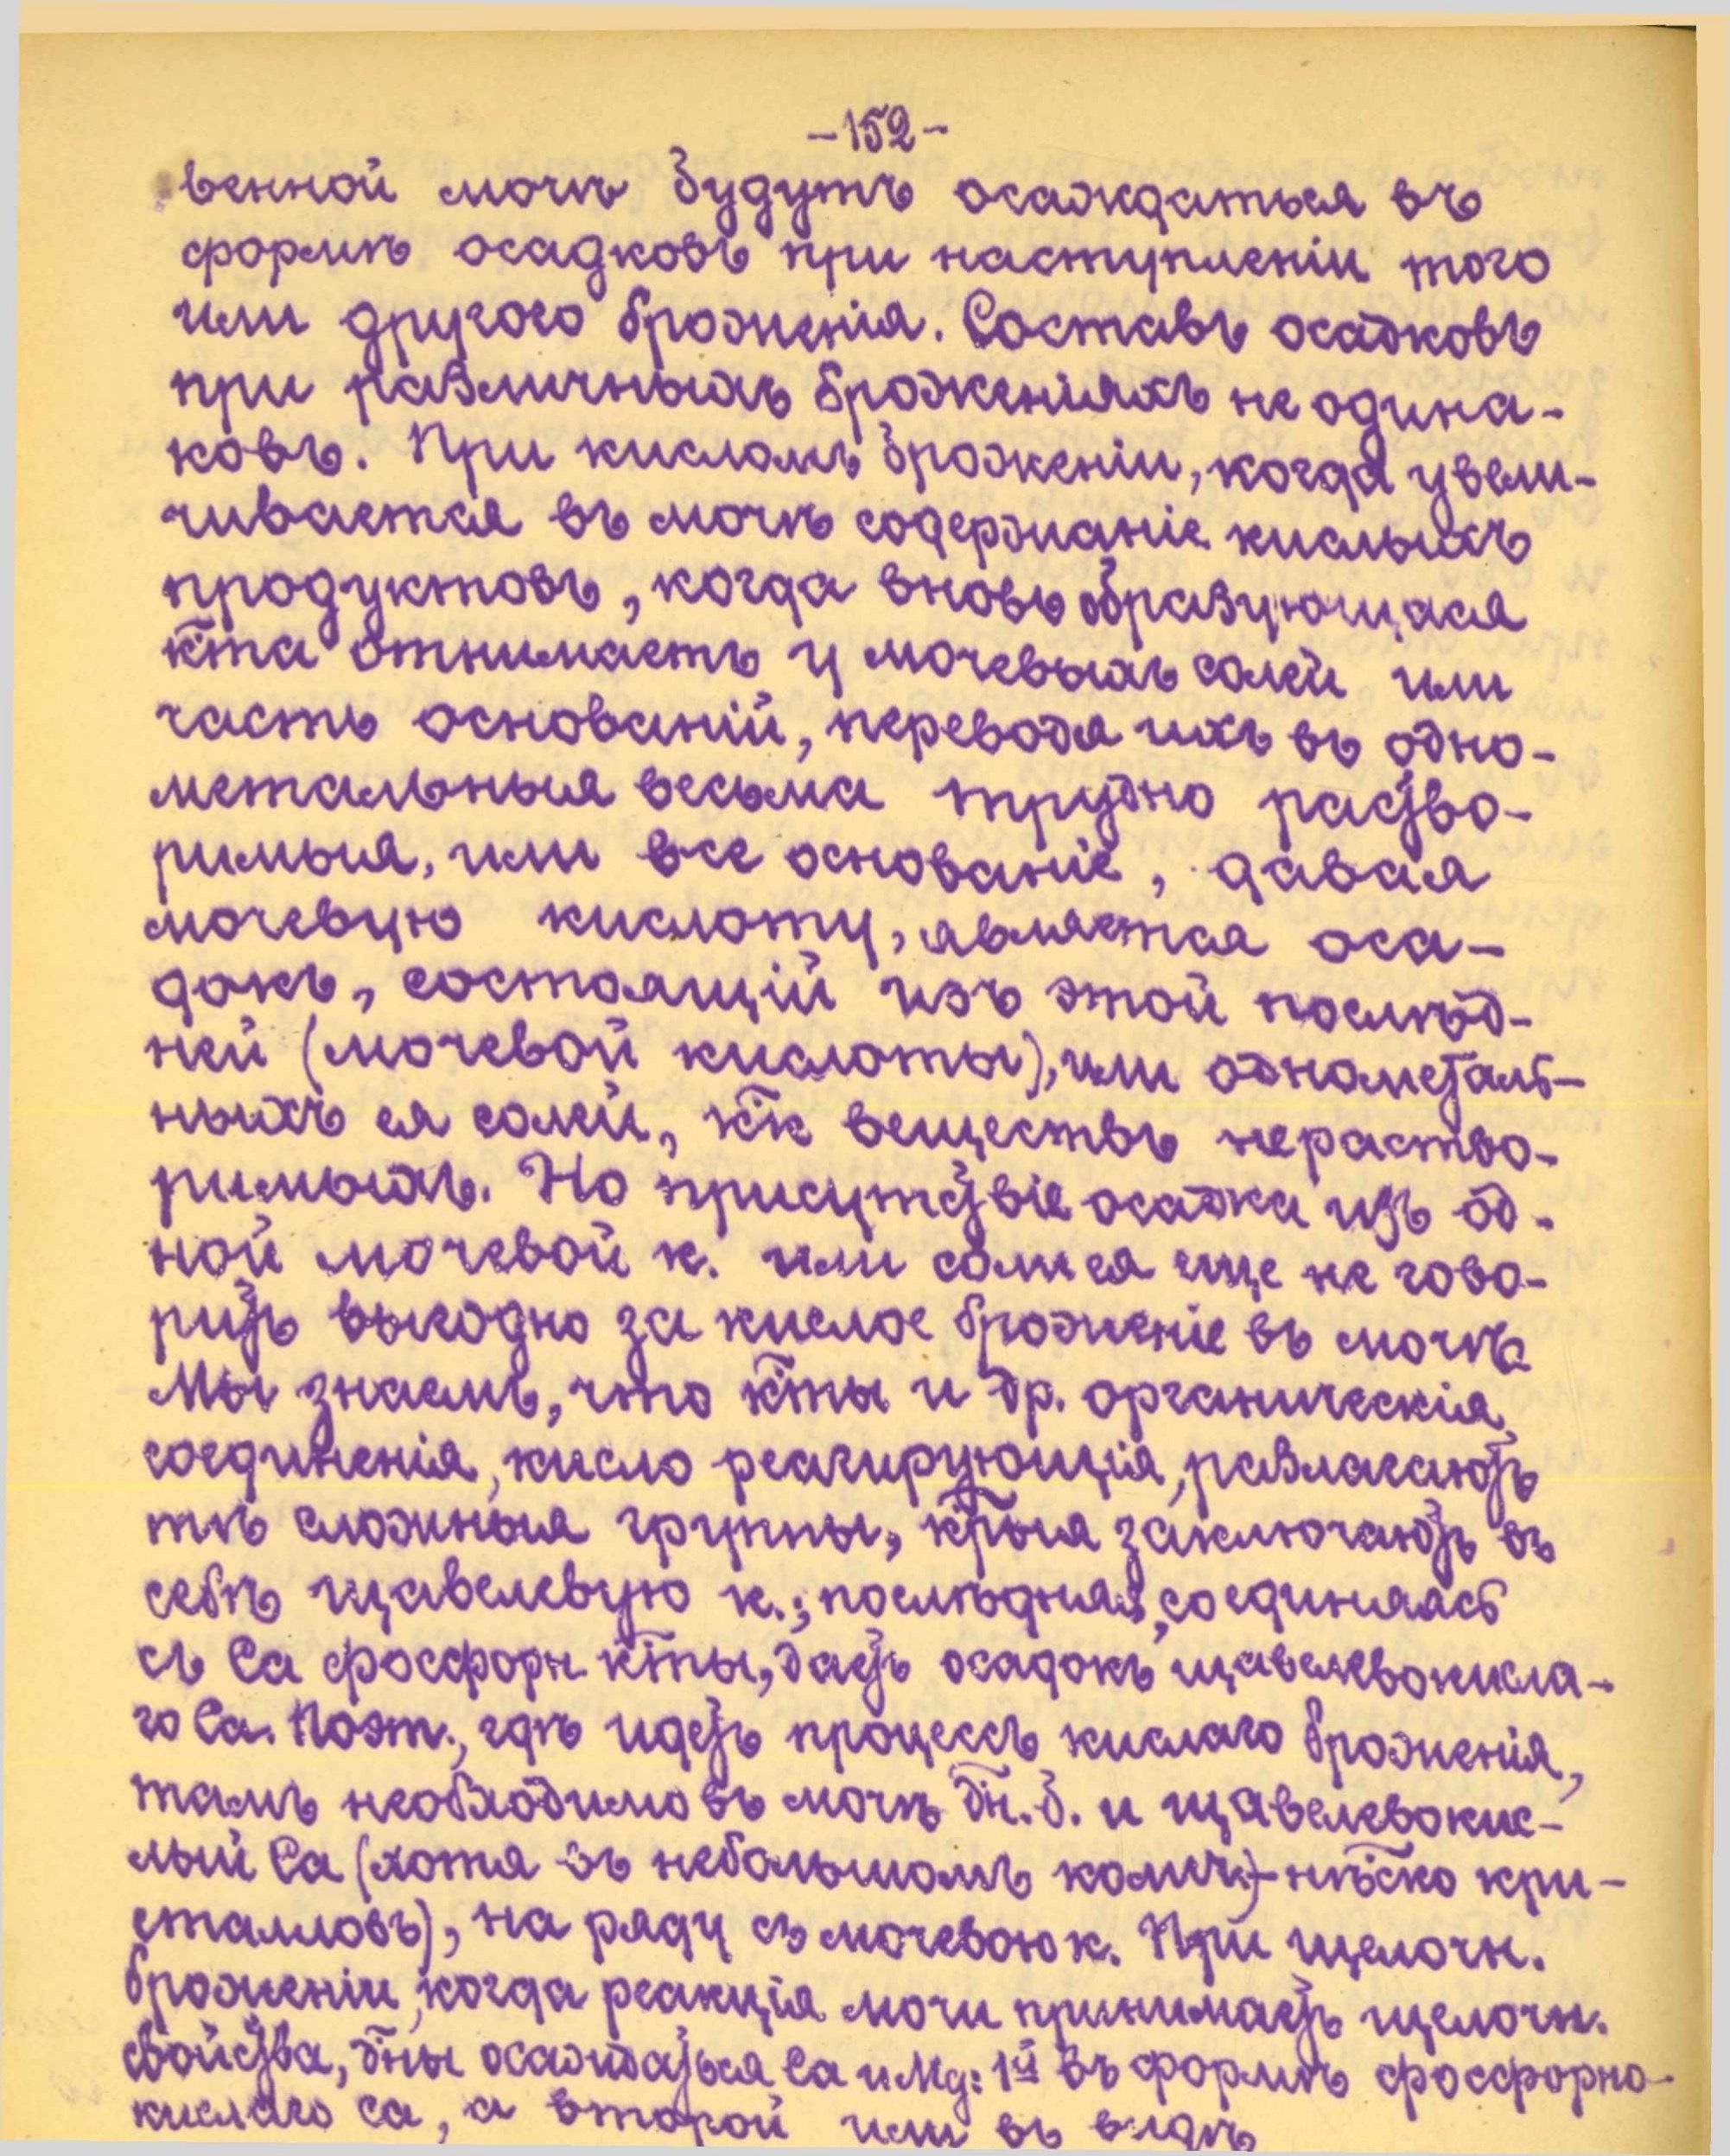 -152-
венной мочѣ будутъ осаждаться въ
формѣ осадковъ при наступленіи того
или другого броженія. Составъ осадковъ
при различныхъ броженіяхъ не одина-
ковъ. При кисломъ броженіи, когда увели-
чивается въ мочѣ содержаніе кислыхъ
продуктовъ, когда вновь образующаяся
кта отнимаетъ у мочевыхъ солей или
часть основаній, переводя ихъ въ одно-
метальныя весьма трудно раство-
римыя, или все основаніе, давая
мочевую кислоту, является оса-
докъ, состоящій изъ этой послѣд-
ней (мочевой кислоты), или однометаль-
ныхъ ея солей, кк веществъ нераство-
римыхъ. Но присутствіе осадка изъ од-
ной мочевой к. или соли ея еще не гово-
ритъ выгодно за кислое броженіе въ мочѣ.
Мы знаемъ, что кты и др. органическія
соединенія, кисло реагирующія, разлагаютъ
тѣ сложныя группы, ктрыя заключаютъ въ
себѣ щавелевую к.; послѣдняя, соединяясь
съ Ca фосфорн кты, даетъ осадокъ щавелевокисла-
го Ca. Поэт., гдѣ идетъ процессъ кислаго броженія,
тамъ необходимо въ мочѣ дн. б. и щавелевокис-
лый Ca (хотя въ небольшомъ колич.)-нѣско кри-
сталловъ), на ряду съ мочевою к. При щелочн.
броженіи, когда реакція мочи принимаетъ щелочн.
свойства, дны осаждаться Ca и Mg: 1й въ формѣ фосфорно-
кислаго Ca, а второй или въ видѣ